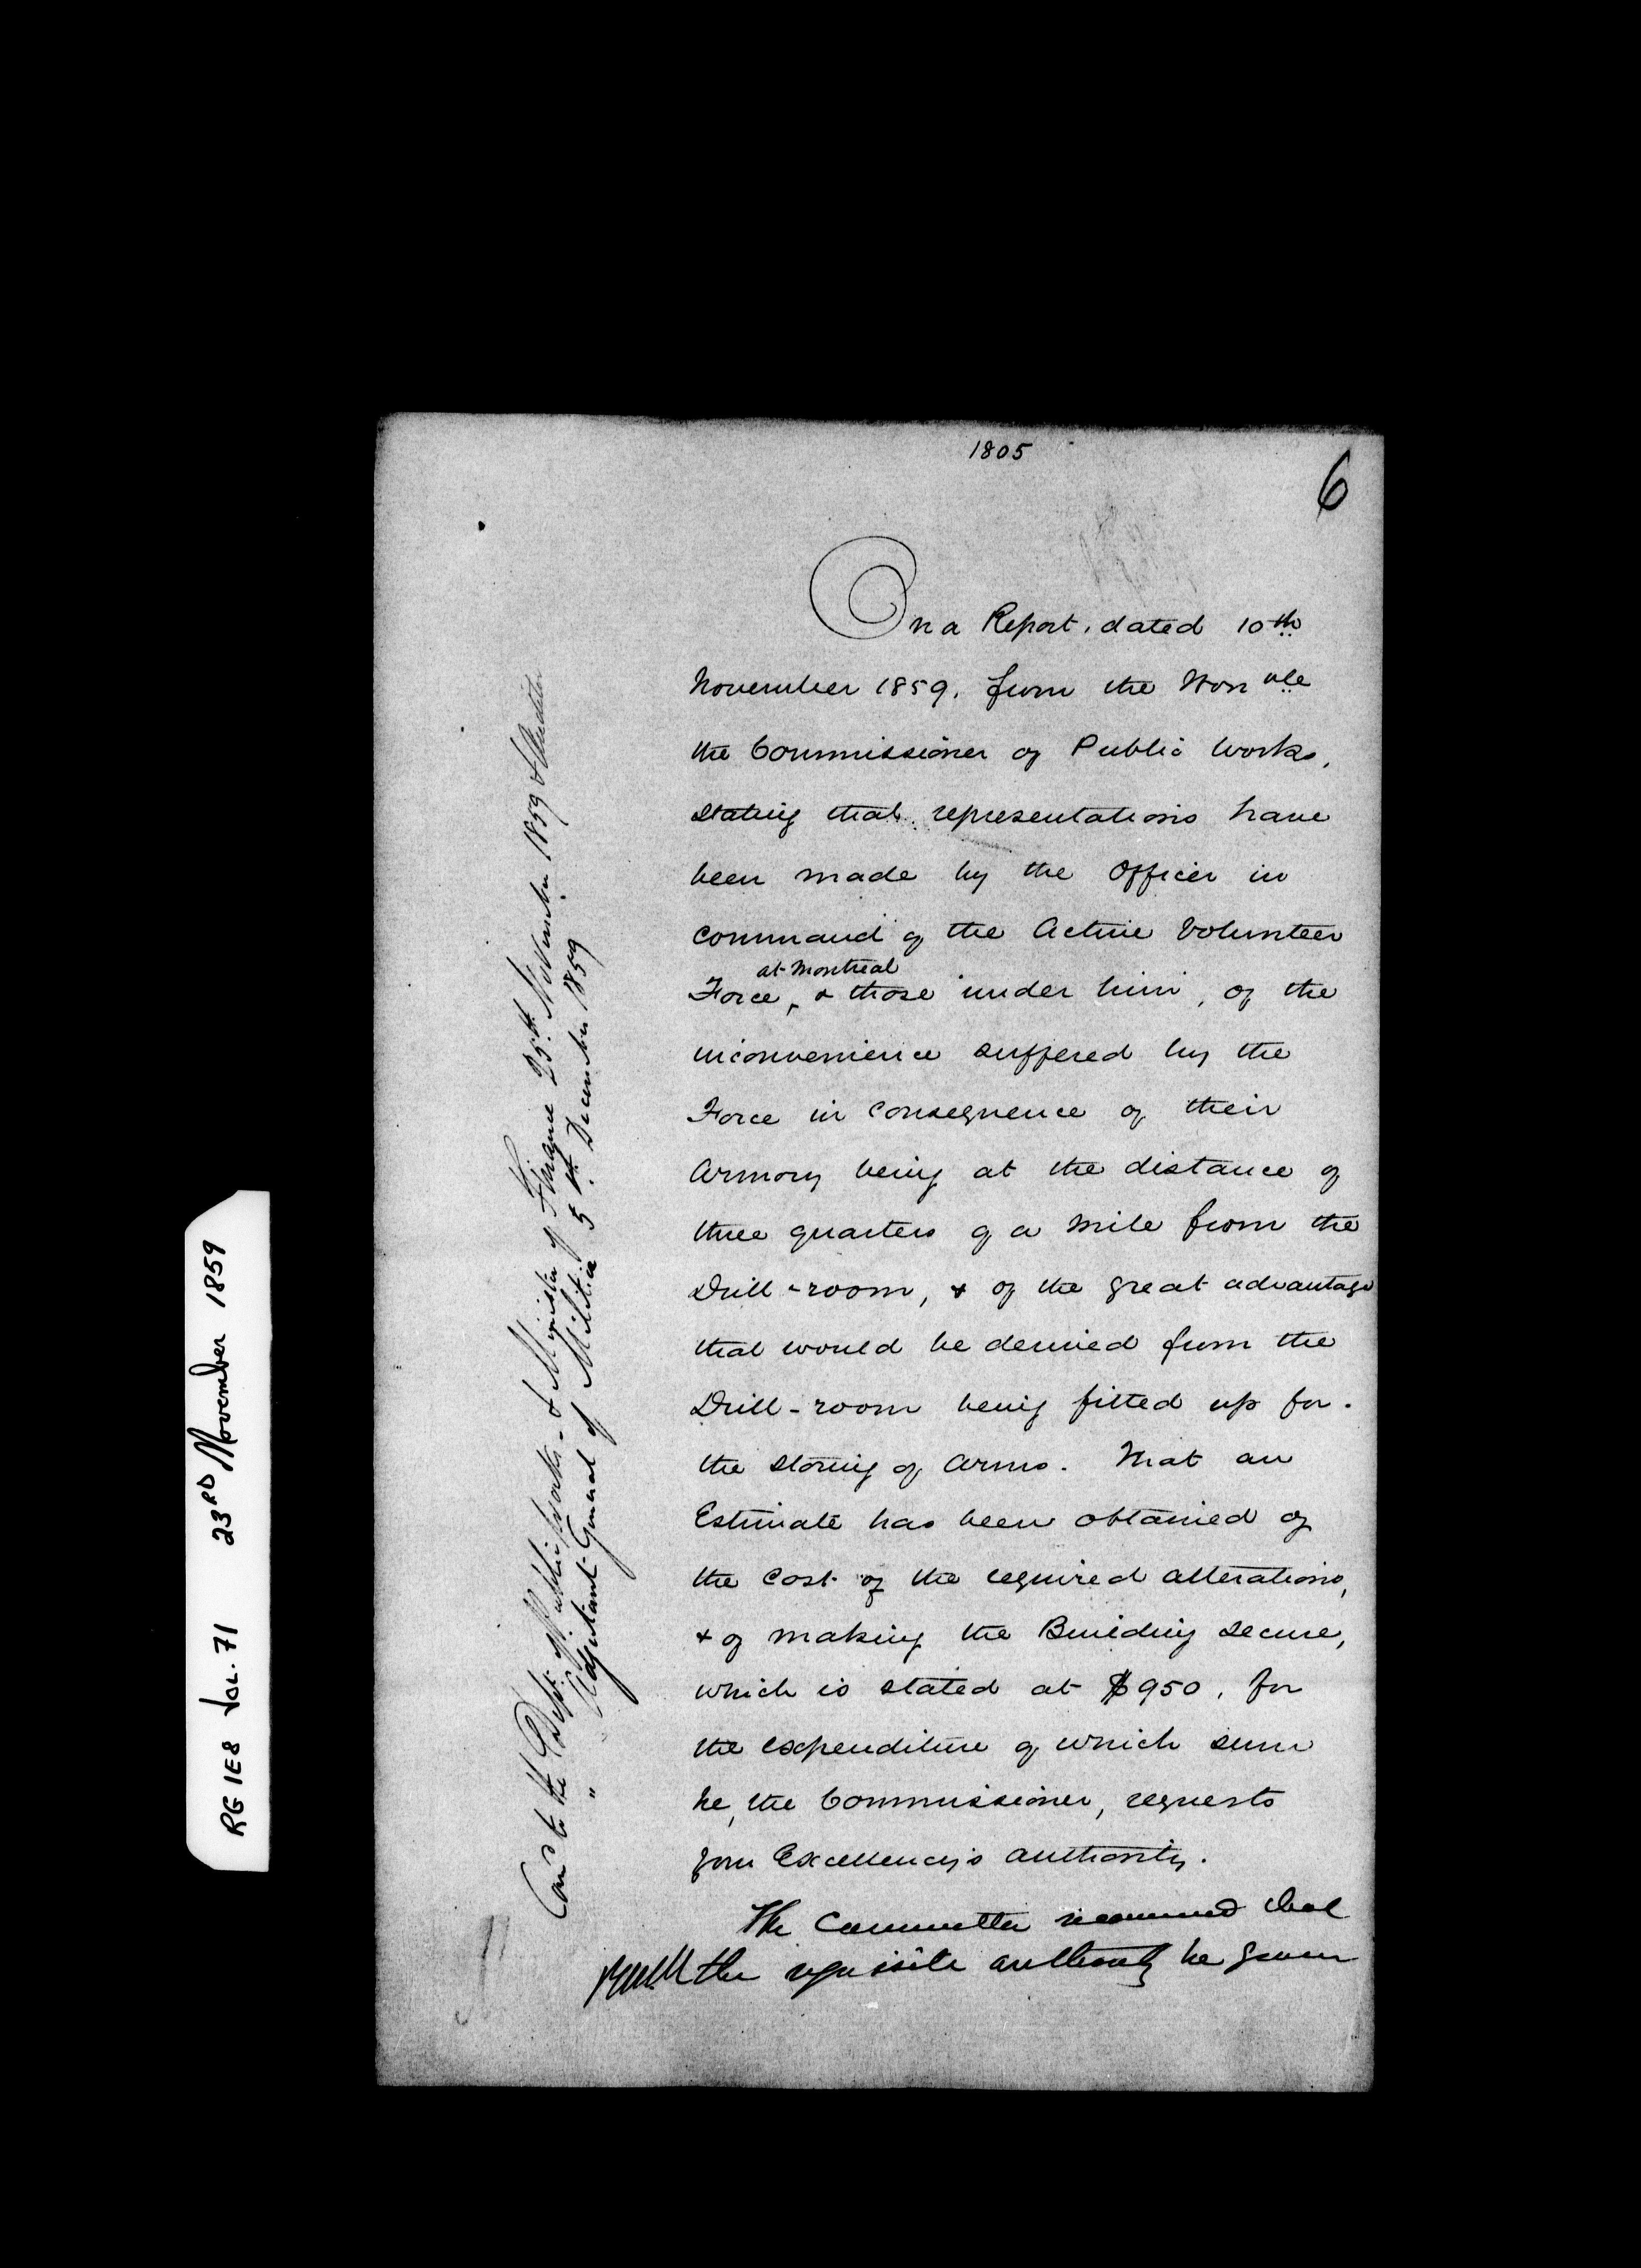 1805
6
On a Report, dated 10th
November 1859, from the Honble
the Commissioner of Public Works,
stating that representations have
been made by the Officer in
command of the Active Volunteer
at Montreal
Force, & those under him, of the
inconvenience suffered by the
Force in consequence of their
Armory being at the distance of
three quarters of a mile from the
Drill-room, & of the great advantage
that would be derived from the
Drill-room being fitted up for
the storing of Arms. That an
Estimate has been obtained of
the cost of the required alterations,
& of making the Building secure,
which is stated at $950, for
the expenditure of which sum
he, the Commissioner, requests
your Excellency's authority.
The Committee recommend that
the requisite authority be given
Cert'd to the Dept. of Public Works - & Minister of Finance 25th November 1859 & Auditor
" " Adjutant General of Militia 5th December 1859
RG 1E8 Vol. 71 23RD November 1859